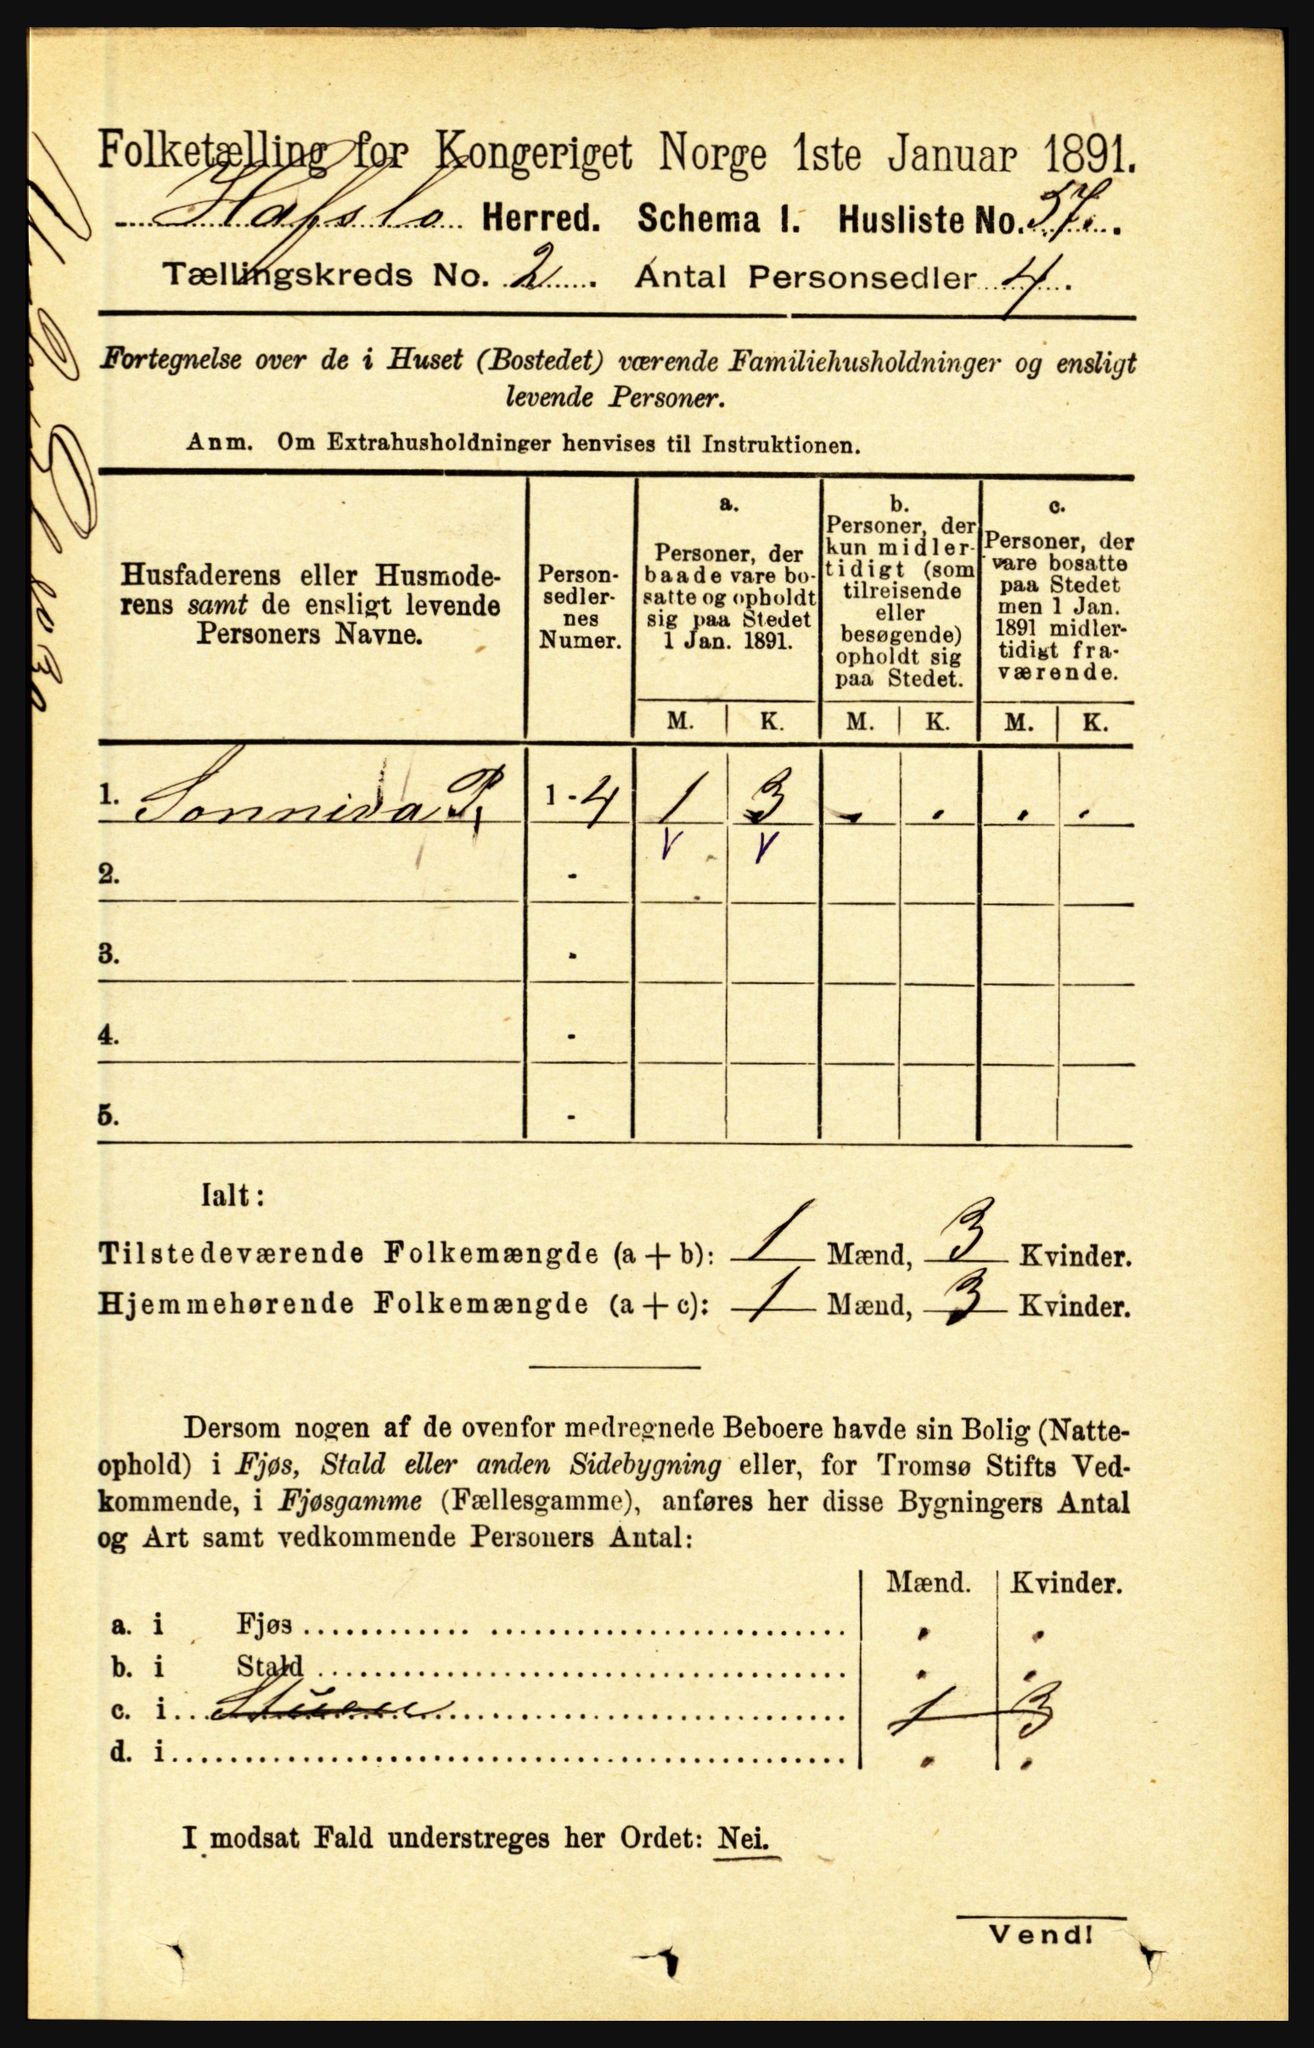 Folketælling for Kongeriget Norge 1ste Januar 1891.
Hafslo Herred. Schema I. Husliste No. 57.
Tællingskreds No. 2. Antal Personsedler 4.
Fortegnelse over de i Huset (Bostedet) værende Familiehusholdninger og ensligt
levende Personer.
Anm. Om Extrahusholdninger henvises til Instruktionen.
Husfaderens eller Husmode-
rens samt de ensligt levende
Personers Navne.
Person-
sedler-
nes
Numer.
a.
Personer, der
baade vare bo-
satte og opholdt
sig paa Stedet
1 Jan. 1891.
b.
Personer, der
kun midler-
tidigt (som
tilreisende
eller
besøgende)
opholdt sig
paa Stedet.
c.
Personer, der
vare bosatte
paa Stedet
men 1 Jan.
1891 midler-
tidigt fra-
værende.
M. K. M. K. M. K.
1. Sonneva P. 1 - 4 1 3 . . . .
2. -
3. -
4. -
5. -
Ialt:
Tilstedeværende Folkemængde (a + b): 1 Mænd, 3 Kvinder.
Hjemmehørende Folkemængde (a + c): 1 Mænd, 3 Kvinder.
Dersom nogen af de ovenfor medregnede Beboere havde sin Bolig (Natte-
ophold) i Fjøs, Stald eller anden Sidebygning eller, for Tromsø Stifts Ved-
kommende, i Fjøsgamme (Fællesgamme), anføres her disse Bygningers Antal
og Art samt vedkommende Personers Antal:
Mænd. Kvinder.
a. i Fjøs . .
b. i Stald . .
c. i Stuen 1 3
d. i . .
I modsat Fald understreges her Ordet: Nei.
Vend!